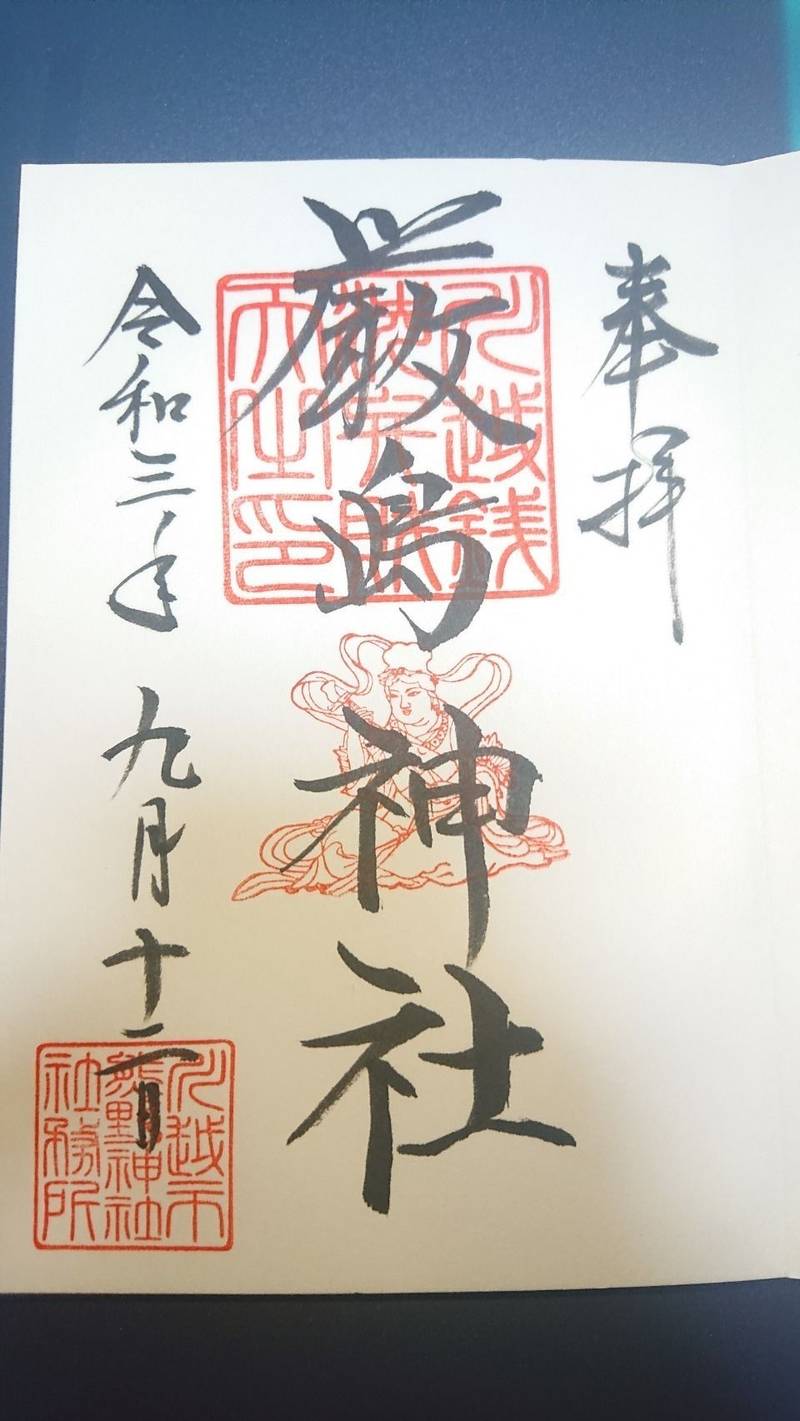 奉拝
厳島神社
川越銭
洗弁財
天之印
令和三年九月十二日
川越市
熊野神社
社務所